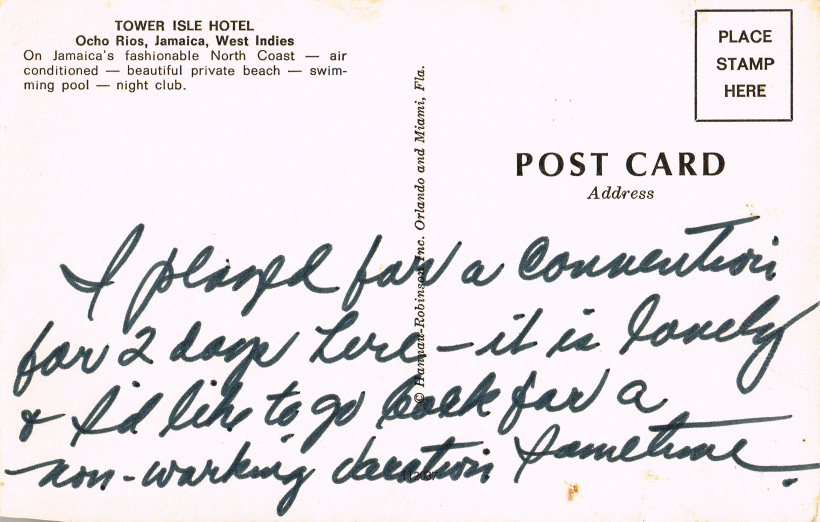 TOWER ISLE HOTEL
Ocho Rios, Jamaica, West Indies
On Jamaica's fashionable North Coast — air
conditioned — beautiful private beach — swim-
ming pool — night club.
PLACE
STAMP
HERE
POST CARD
Address
© Hannau-Robinson Inc. Orlando and Miami, Fla.
I played for a convention
for 2 days here — it is lovely
& I'd like to go back for a
non-working vacation sometime.